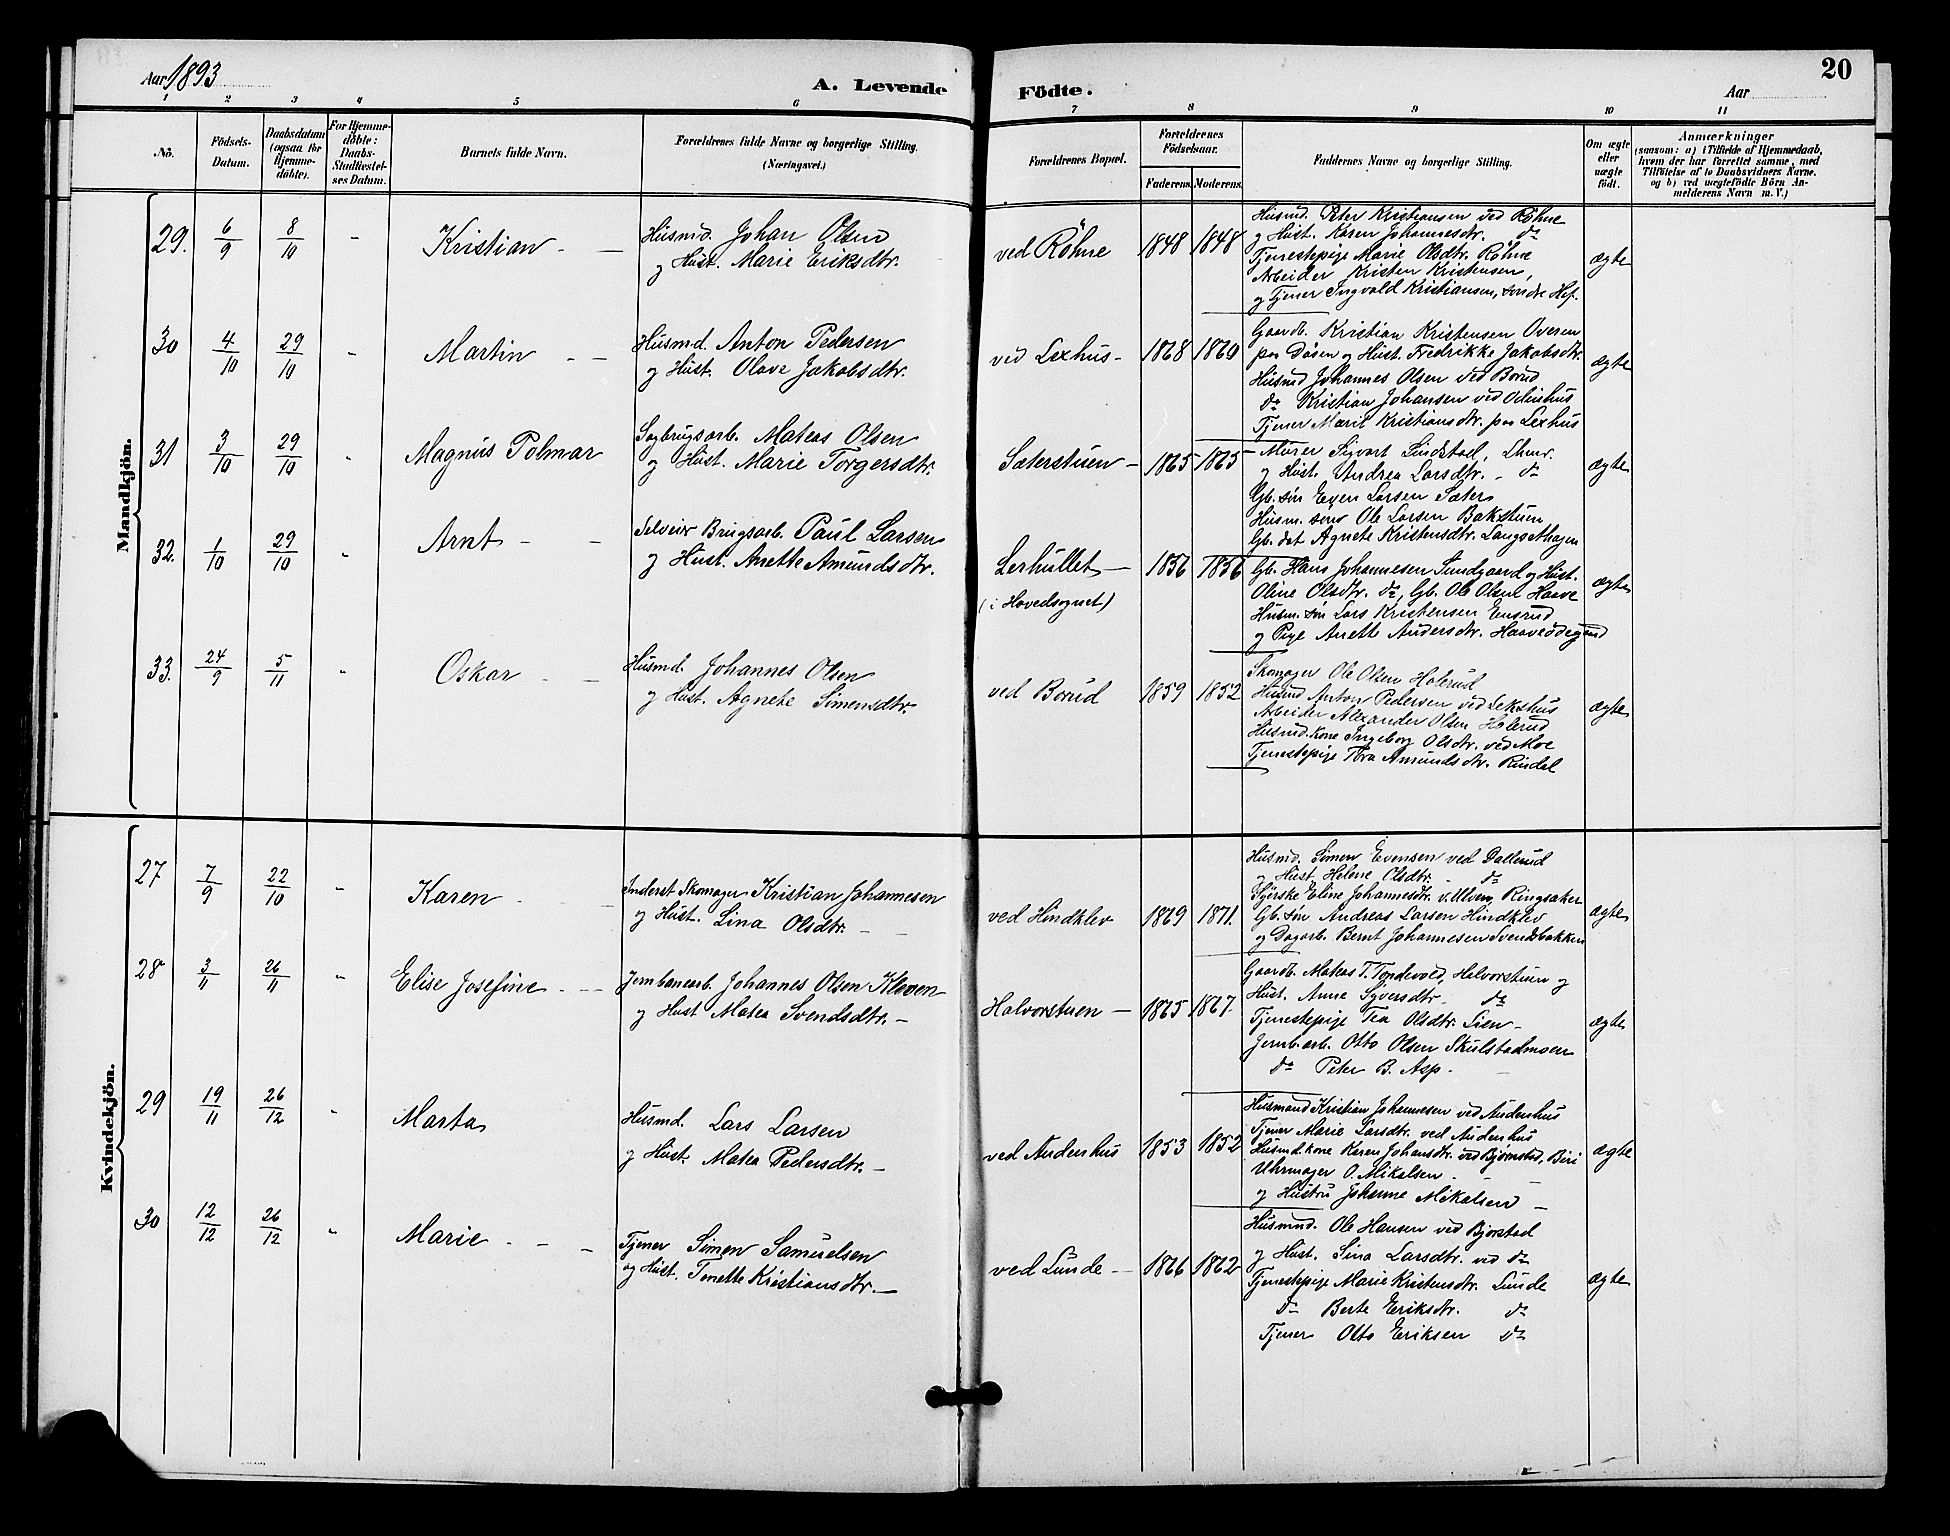 Aar 1893
A. Levende Födte.
20
Aar
1 2 3 4 5 6 7 8 9 10 11
No.
Födsels-Datum.
Daabsdatum (ogsaa for Hjemmedöbte).
For Hjemmedöbte: Daabs-Stadfæstelses Datum.
Barnets fulde Navn.
Forældrenes fulde Navne og borgerlige Stilling. (Næringsvei.)
Forældrenes Bopæl.
Forældrenes Födselsaar.
Faderens. Moderens.
Faddernes Navne og borgerlige Stilling.
Om ægte eller uægte födt.
Anmærkninger
(saasom: a) i Tilfælde af Hjemmedaab, hvem der har forrettet samme, med Tilföielse af to Daabsvidners Navne, og b) ved uægtefödte Börn Anmelderens Navn m. V.)
Mandkjön.
29. 6/9 8/10 - Kristian - -
Husmd. Johan Olsen
og Hust. Marie Eriksdtr.
ved Röhne 1848 1848
Husmd. Peter Kristiansen ved Röhne
og Hust. Karen Johannesdtr. do
Tjenestepige Marie Olsdtr. Röhne
Arbeider Kristen Kristensen,
og Tjener Ingvald Kristiansen, söndre Hof.
ægte
30 4/10 29/10 " Martin - -
Husmd. Anton Pedersen
og Hust. Olave Jakobsdtr.
ved Lexhus - 1868 1860
Gaardb. Kristian Kristensen Overen
paa Dösen og Hust. Fredrikke Jakobsdtr.
Husmd Johannes Olsen ved Borud
do Kristian Johansen ved
Tjener Marit Kristiansdtr. paa Lexhus
ægte
31 3/10 29/10 " Magnus Polmar
Sagbrugsarb. Mateas Olsen
og Hust. Marie Torgersdtr.
Sæterstuen - 1865 1865
Murer Sigvart Lindstad, Lhmr.
og Hust. Andrea Larsdtr. - do
Gb. sön Even Larsen Sæter
Husm. sön Ole Larsen Bakstuen
Gb. dat Agnete Kristensdtr. Langsethagen
ægte
32. 1/10 29/10 " Arnt - -
Selveier Brugsarb. Paul Larsen
og Hust. Anette Amundsdtr.
Lerhullet - 1856 1856
(i Hovedsognet)
Gb. Hans Johannesen Sundgaard og Hust.
Oline Olsdtr. do, Gb. Ole Olsen Haave
Husm. sön Lars Kristensen Ensrud
og Pige Anette Andersdtr. Haaveödegaard
ægte
33. 24/9 5/11 " Oskar - -
Husmd. Johannes Olsen
og Hust. Agnete Simensdtr.
ved Borud 1859 1852
Skomager Ole Olsen Holerud
Husmd Anton Pedersen ved Lekshus
Arbeider Alexander Olsen Holerud
Husmd. kone Ingeborg Olsdtr. ved Moe
Tjenestepige Tora Amundsdtr. Rindal
ægte
Kvindekjön.
27 7/9 22/10 " Karen - -
Inderst Skomager Kristian Johannesen
og Hust. Lina Olsdtr. - -
ved Hindklev 1869 1871.
Husmd. Simen Evensen ved Dallerud
og Hust. Helene Olsdtr. - do
Syerske Eline Johannesdtr. v. Ulven, Ringsaker
Gb. sön Andreas Larsen Hindklev
og Dagarb. Bernt Johannesen Svendsbakken
ægte
28 3/11 26/11 " Elise Josefine - -
Jernbanearb. Johannes Olsen Kleven
og Hust Matea Svendsdtr. -
Halvorstuen - 1865 1867.
Gaardb. Mateas T. Tondevold, Halvorstuen og
Hust. Anne Syversdtr. - do
Tjenestepige Tea Olsdtr. Lien -
Jernb. arb. Otto Olsen Skulstadmoen
do Peter B. Asp. -
ægte
29 19/11 26/12 " Marta
Husmd. Lars Larsen
og Hust. Matea Pedersdtr. -
ved Audenhus 1853 1852
Husmand Kristian Johannesen ved Audenhus
Tjener Marie Larsdtr. ved Audenhus
Husmd. kone Karen Johansdtr. ved Bjørnstad, Biri
Uhrmager O. Mikalsen -
og Hustru Johanne Mikalsen -
ægte
30 12/12 26/12 " Marie - - -
Tjener Simen Samuelsen
og Hust. Tonette Kristiansdtr. -
ved Lunde - 1866 1862
Husmd. Ole Hansen ved Bjørstad
og Hust. Sina Larsdtr. ved do
Tjenestepige Marie Kristensdtr. Lunde
do Berte Eriksdtr. do
Tjener Otto Eriksen do
ægte